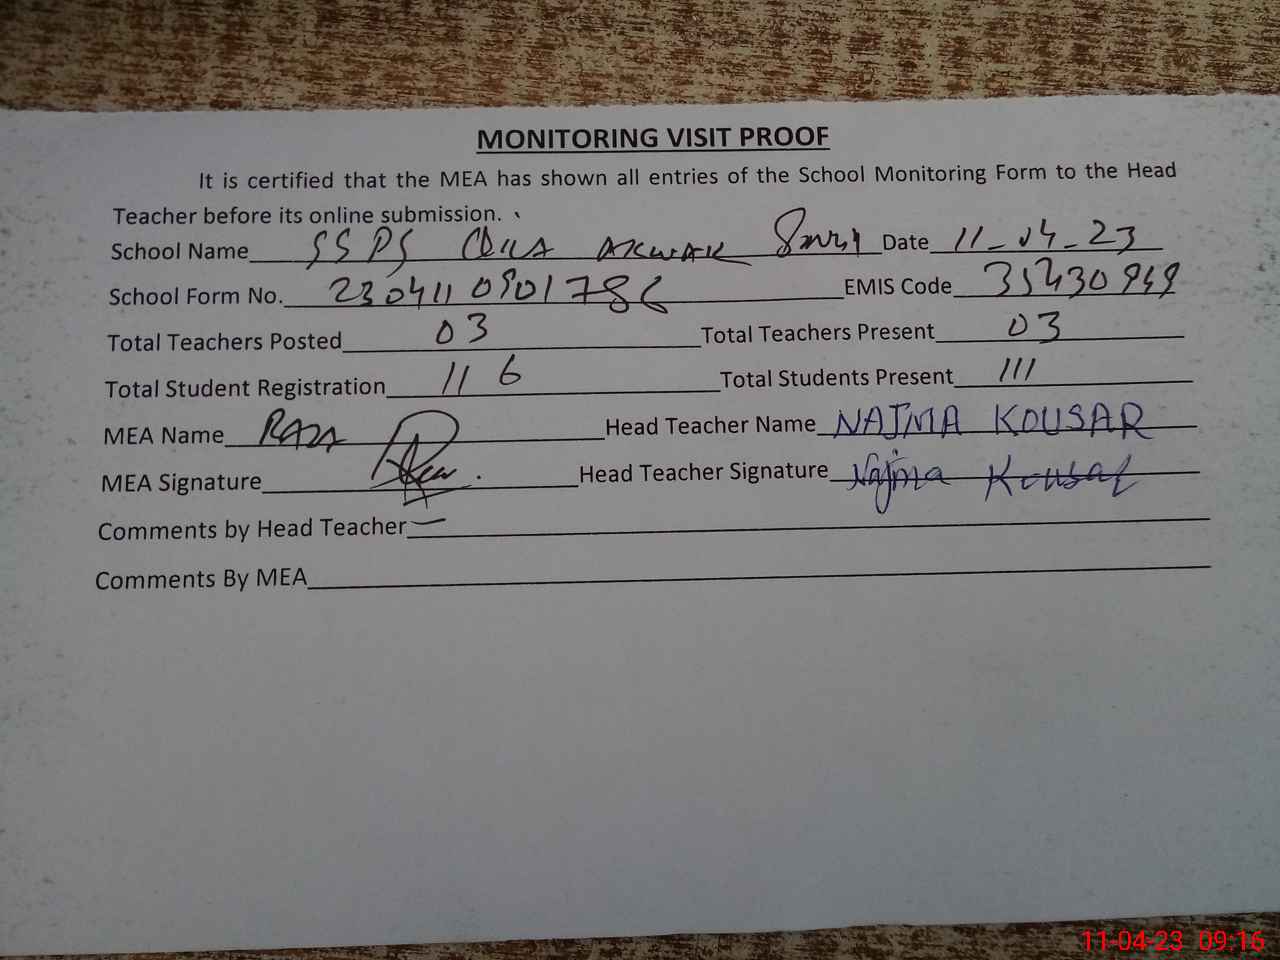 MONITORING VISIT PROOF
It is certified that the MEA has shown all entries of the School Monitoring Form to the Head
Teacher before its online submission.
School Name SSPS Date 11-04-23
School Form No. 230411 EMIS Code
Total Teachers Posted 03 Total Teachers Present 03
Total Student Registration 116 Total Students Present 111
MEA Name RAZA Head Teacher Name NAJMA KOUSAR
MEA Signature Head Teacher Signature Najma Kousar
Comments by Head Teacher —
Comments By MEA
11-04-23 09:16